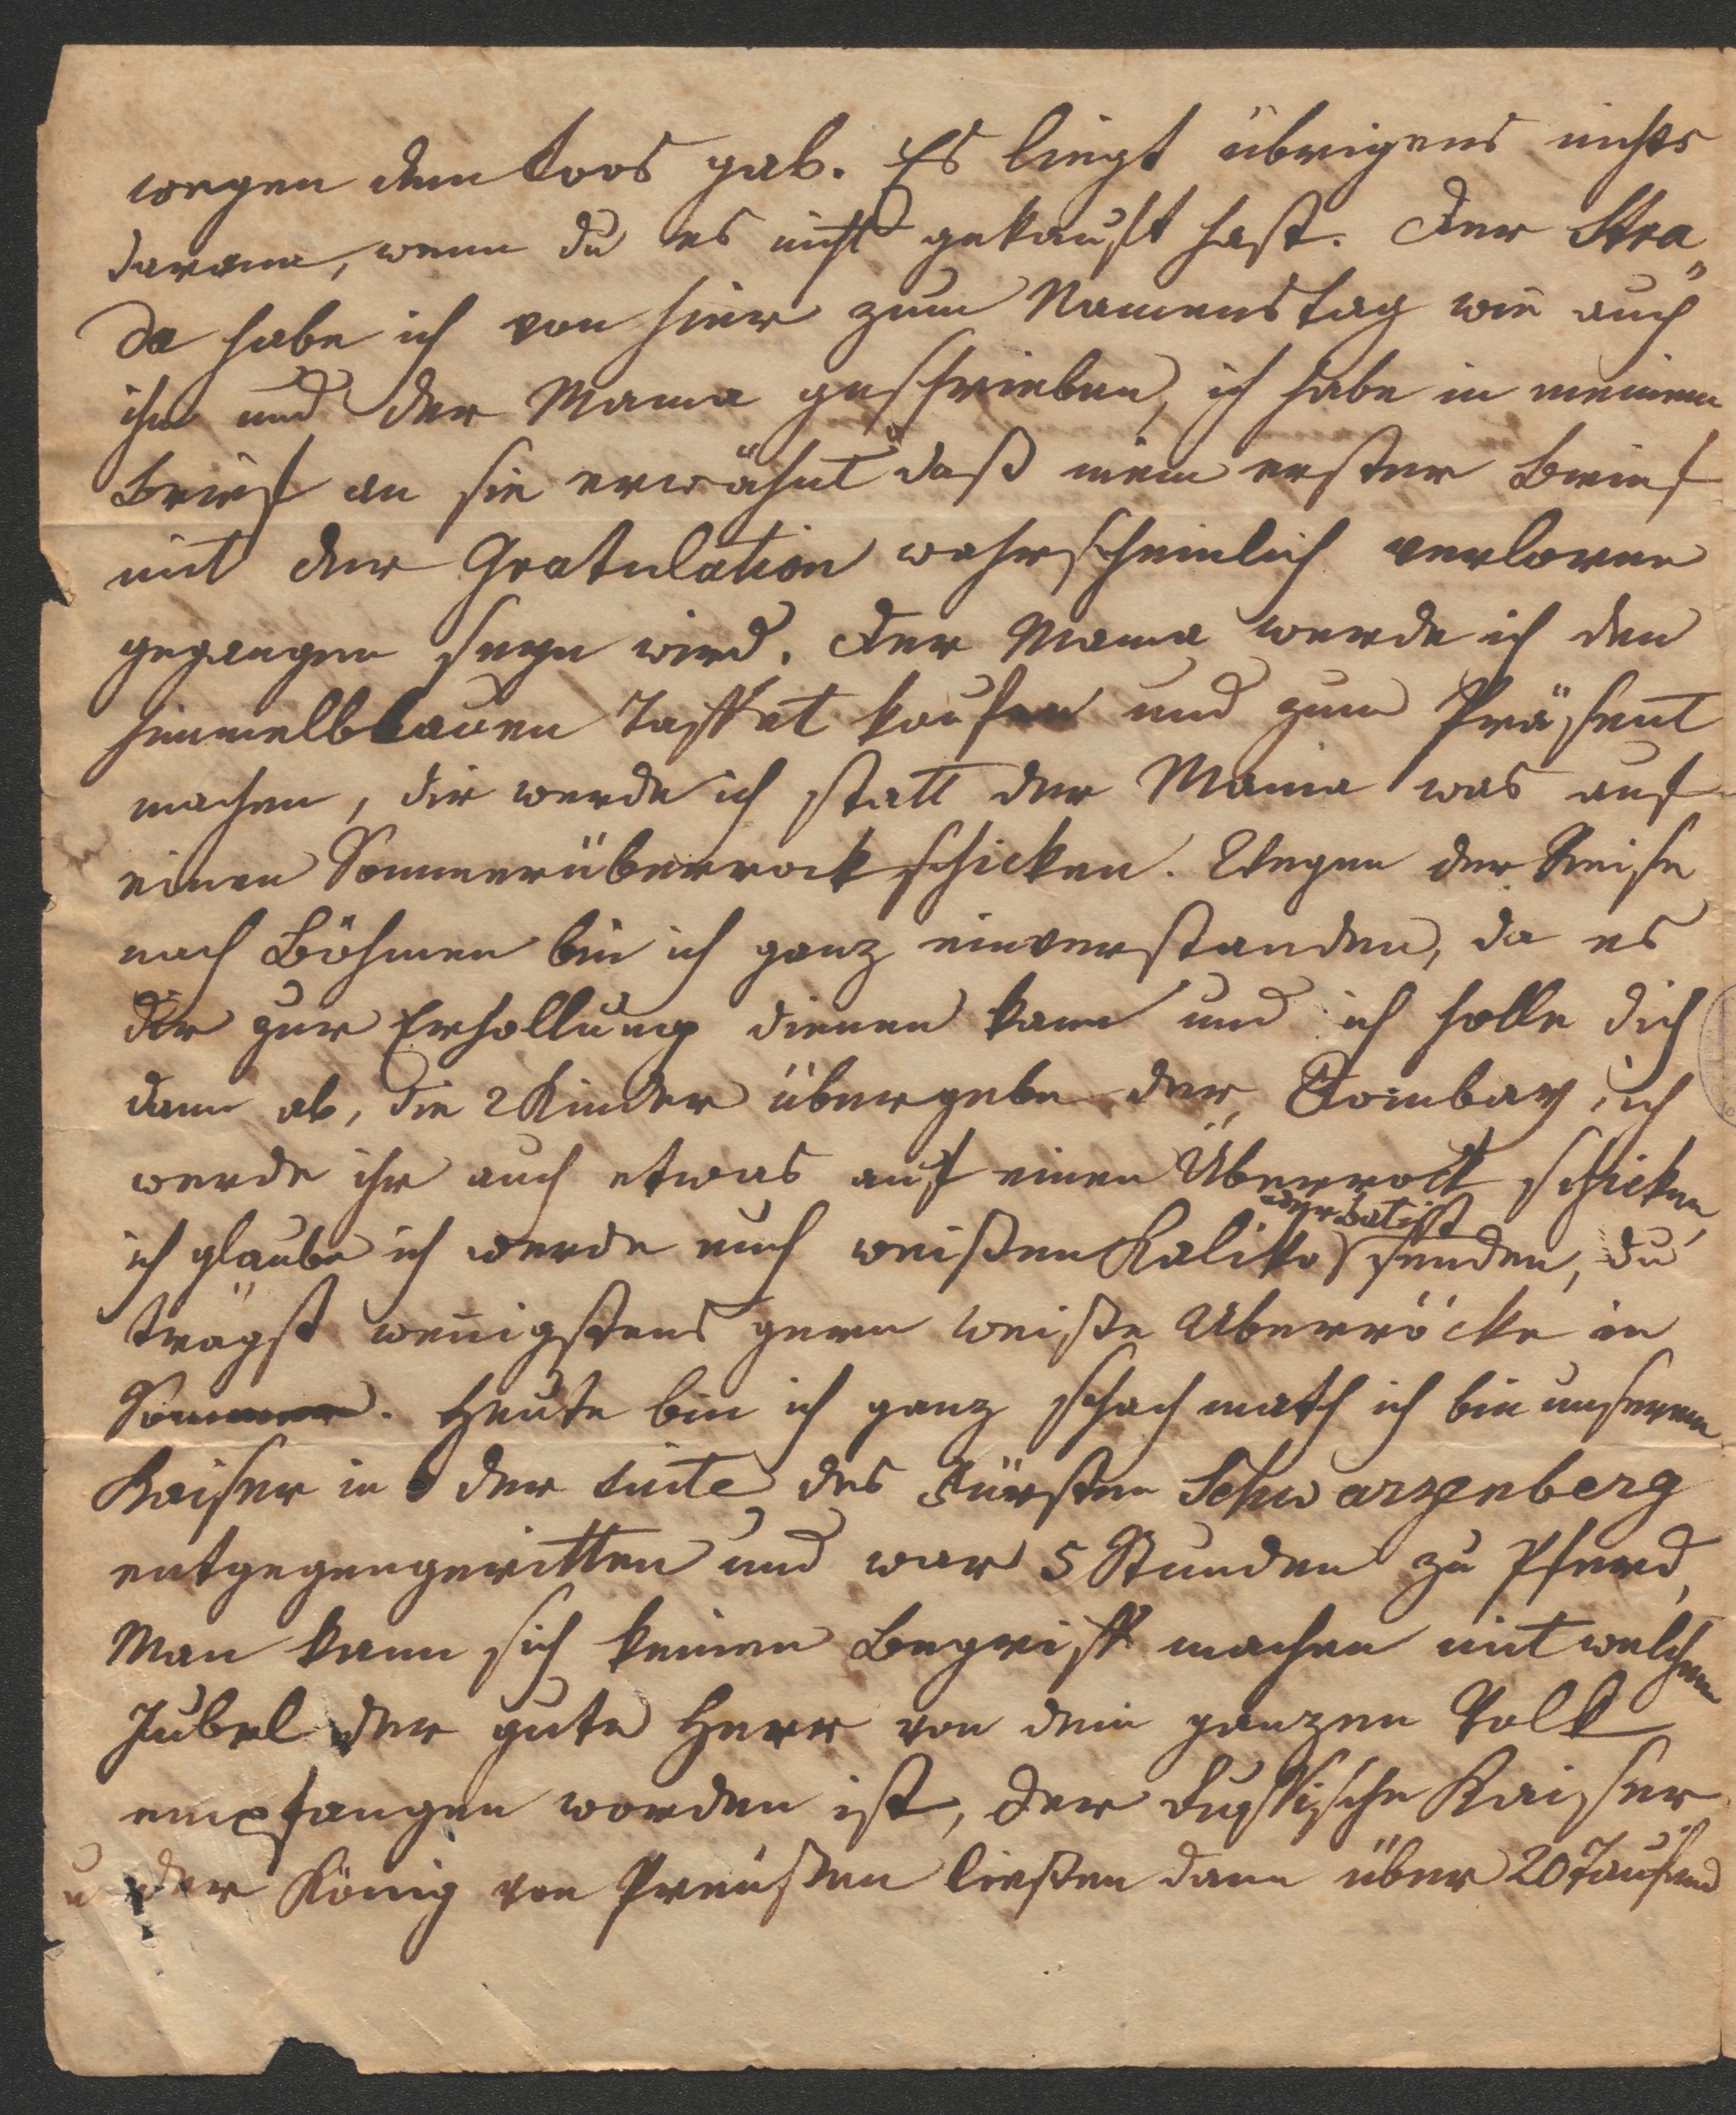 wegen dem Loos gab. Es liegt übrigens nichts
daran, wenn du es nicht gekauft hast. Der Stra„
da habe ich von hier zum Namenstag wie auch
ihr und der Mama geschrieben, ich habe in meinem
Brief an sie erwähnt daß mein erster Brief
mit der Gratulation wahrscheinlich verloren
gegangen seyn wird. Der Mama werde ich den
himmelblauen Taffet kaufen und zum Präsent
machen, dir werde ich statt der Mama was auf
einen Sommerüberrock schicken. Wegen der Reise
nach Böhmen bin ich ganz einverstanden, da es
dir zur Erhollung dienen kann und ich holle dich
dann ab, die 2 Kinder übergebe der Dombay, ich
werde ihr auch etwas auf einen Überrock schicken,
ich glaube ich werde euch weißen Kaliko oder Batist senden, du
trägst wenigstens gern weiße Überröcke im
Sommer. Heute bin ich ganz schach math ich bin unserem
Kaiser in der Suite des Fürsten Schwarzenberg
entgegengeritten und war 5 Stunden zu Pferd,
Man kann sich keinen Begriff machen mit welchem
Jubel der gute Herr von dem ganzen Volk
empfangen worden ist, der Russische Kaiser
u der König von Preußen ließen dann über 20 Tausend